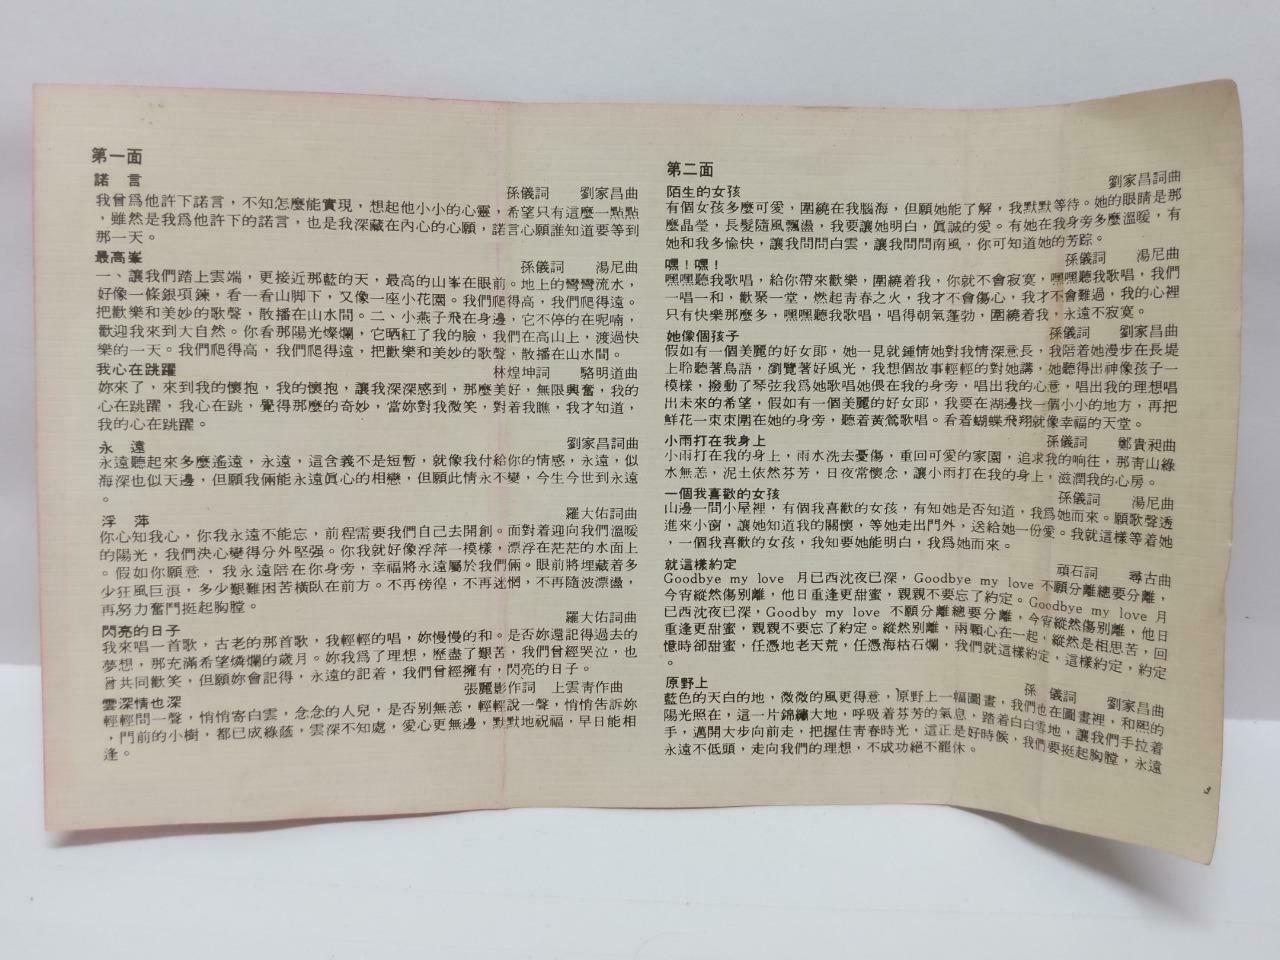 第一面
諾　言
孫儀詞　劉家昌曲
我曾爲他許下諾言，不知怎麼能實現，想起他小小的心靈，希望只有這麼一點點
，雖然是我爲他許下的諾言，也是我深藏在內心的心願，諾言心願誰知道要等到
那一天。
最高峯
孫儀詞　湯尼曲
一、讓我們踏上雲端，更接近那藍的天，最高的山峯在眼前。地上的彎彎流水，
好像一條銀項鍊，看一看山脚下，又像一座小花園。我們爬得高，我們爬得遠。
把歡樂和美妙的歌聲，散播在山水間。二、小燕子飛在身邊，它不停的在呢喃，
歡迎我來到大自然。你看那陽光燦爛，它晒紅了我的臉，我們在高山上，渡過快
樂的一天。我們爬得高，我們爬得遠，把歡樂和美妙的歌聲，散播在山水間。
我心在跳躍
林煌坤詞　駱明道曲
妳來了，來到我的懷抱，我的懷抱，讓我深深感到，那麼美好，無限興奮，我的
心在跳躍，我心在跳，覺得那麼的奇妙，當妳對我微笑，對着我瞧，我才知道，
我的心在跳躍。
永　遠
劉家昌詞曲
永遠聽起來多麼遙遠，永遠，這含義不是短暫，就像我付給你的情感，永遠，似
海深也似天邊，但願我倆能永遠眞心的相戀，但願此情永不變，今生今世到永遠
。
浮　萍
羅大佑詞曲
你心知我心，你我永遠不能忘，前程需要我們自己去開創。面對着迎向我們溫暖
的陽光，我們決心變得分外堅强。你我就好像浮萍一模樣，漂浮在茫茫的水面上
。假如你願意，我永遠陪在你身旁，幸福將永遠屬於我們倆。眼前將埋藏着多
少狂風巨浪，多少艱難困苦橫臥在前方。不再傍徨，不再迷惘，不再隨波漂盪，
再努力奮鬥挺起胸膛。
閃亮的日子
羅大佑詞曲
我來唱一首歌，古老的那首歌，我輕輕的唱，妳慢慢的和。是否妳還記得過去的
夢想，那充滿希望燐爛的歲月。妳我爲了理想，歷盡了艱苦，我們曾經哭泣，也
曾共同歡笑，但願妳會記得，永遠的記着，我們曾經擁有，閃亮的日子。
雲深情也深
張麗影作詞　上雲靑作曲
輕輕問一聲，悄悄寄白雲，念念的人兒，是否別無恙，輕輕說一聲，悄悄告訴妳
，門前的小樹，都已成綠蔭，雲深不知處，愛心更無邊，默默地祝福，早日能相
逢。
第二面
陌生的女孩
劉家昌詞曲
有個女孩多麼可愛，圍繞在我腦海，但願她能了解，我默默等待。她的眼睛是那
麼晶瑩，長髮隨風飄盪，我要讓她明白，眞誠的愛。有她在我身旁多麼溫暖，有
她和我多愉快，讓我問問白雲，讓我問問南風，你可知道她的芳踪。
嘿！嘿！
孫儀詞　湯尼曲
嘿嘿聽我歌唱，給你帶來歡樂，圍繞着我，你就不會寂寞，嘿嘿聽我歌唱，我們
一唱一和，歡聚一堂，燃起靑春之火，我才不會傷心，我才不會難過，我的心裡
只有快樂那麼多，嘿嘿聽我歌唱，唱得朝氣蓬勃，圍繞着我，永遠不寂寞。
她像個孩子
孫儀詞　劉家昌曲
假如有一個美麗的好女郎，她一見就鍾情她對我情深意長，我陪着她漫步在長堤
上聆聽著鳥語，瀏覽著好風光，我想個故事輕輕的對她講，她聽得出神像孩子一
模樣，撥動了琴弦我爲她歌唱她偎在我的身旁，唱出我的心意，唱出我的理想唱
出未來的希望，假如有一個美麗的好女郎，我要在湖邊找一個小小的地方，再把
鮮花一束束圍在她的身旁，聽着黃鶯歌唱。看着蝴蝶飛翔就像幸福的天堂。
小雨打在我身上
孫儀詞　鄭貴昶曲
小雨打在我的身上，雨水洗去憂傷，重回可愛的家園，追求我的响往，那靑山綠
水無恙，泥土依然芬芳，日夜常懷念，讓小雨打在我的身上，滋潤我的心房。
一個我喜歡的女孩
孫儀詞　湯尼曲
山邊一間小屋裡，有個我喜歡的女孩，有知她是否知道，我爲她而來。願歌聲透
進來小窗，讓她知道我的關懷，等她走出門外，送給她一份愛。我就這樣等着她
，一個我喜歡的女孩，我知要她能明白，我爲她而來。
就這樣約定
頑石詞　尋古曲
Goodbye my love 月已西沈夜已深，Goodbye my love 不願分離總要分離，
今宵縱然傷别離，他日重逢更甜蜜，親親不要忘了約定。Goodbye my love 月
已西沈夜已深，Goodby my love 不願分離總要分離，今宵縱然傷別離，他日
重逢更甜蜜，親親不要忘了約定。縱然別離，兩顆心在一起，縱然是相思苦，回
憶時卻甜蜜，任憑地老天荒，任憑海枯石爛，我們就這樣約定，這樣約定，約定
。
原野上
孫　儀詞　劉家昌曲
藍色的天白的地，微微的風更得意，原野上一幅圖畫，我們也在圖畫裡，和熙的
陽光照在，這一片錦繡大地，呼吸着芬芳的氣息，踏着白白雪地，讓我們手拉着
手，邁開大步向前走，把握住靑春時光，這正是好時候，我們要挺起胸膛，永遠
永遠不低頭，走向我們的理想，不成功絕不罷休。
3